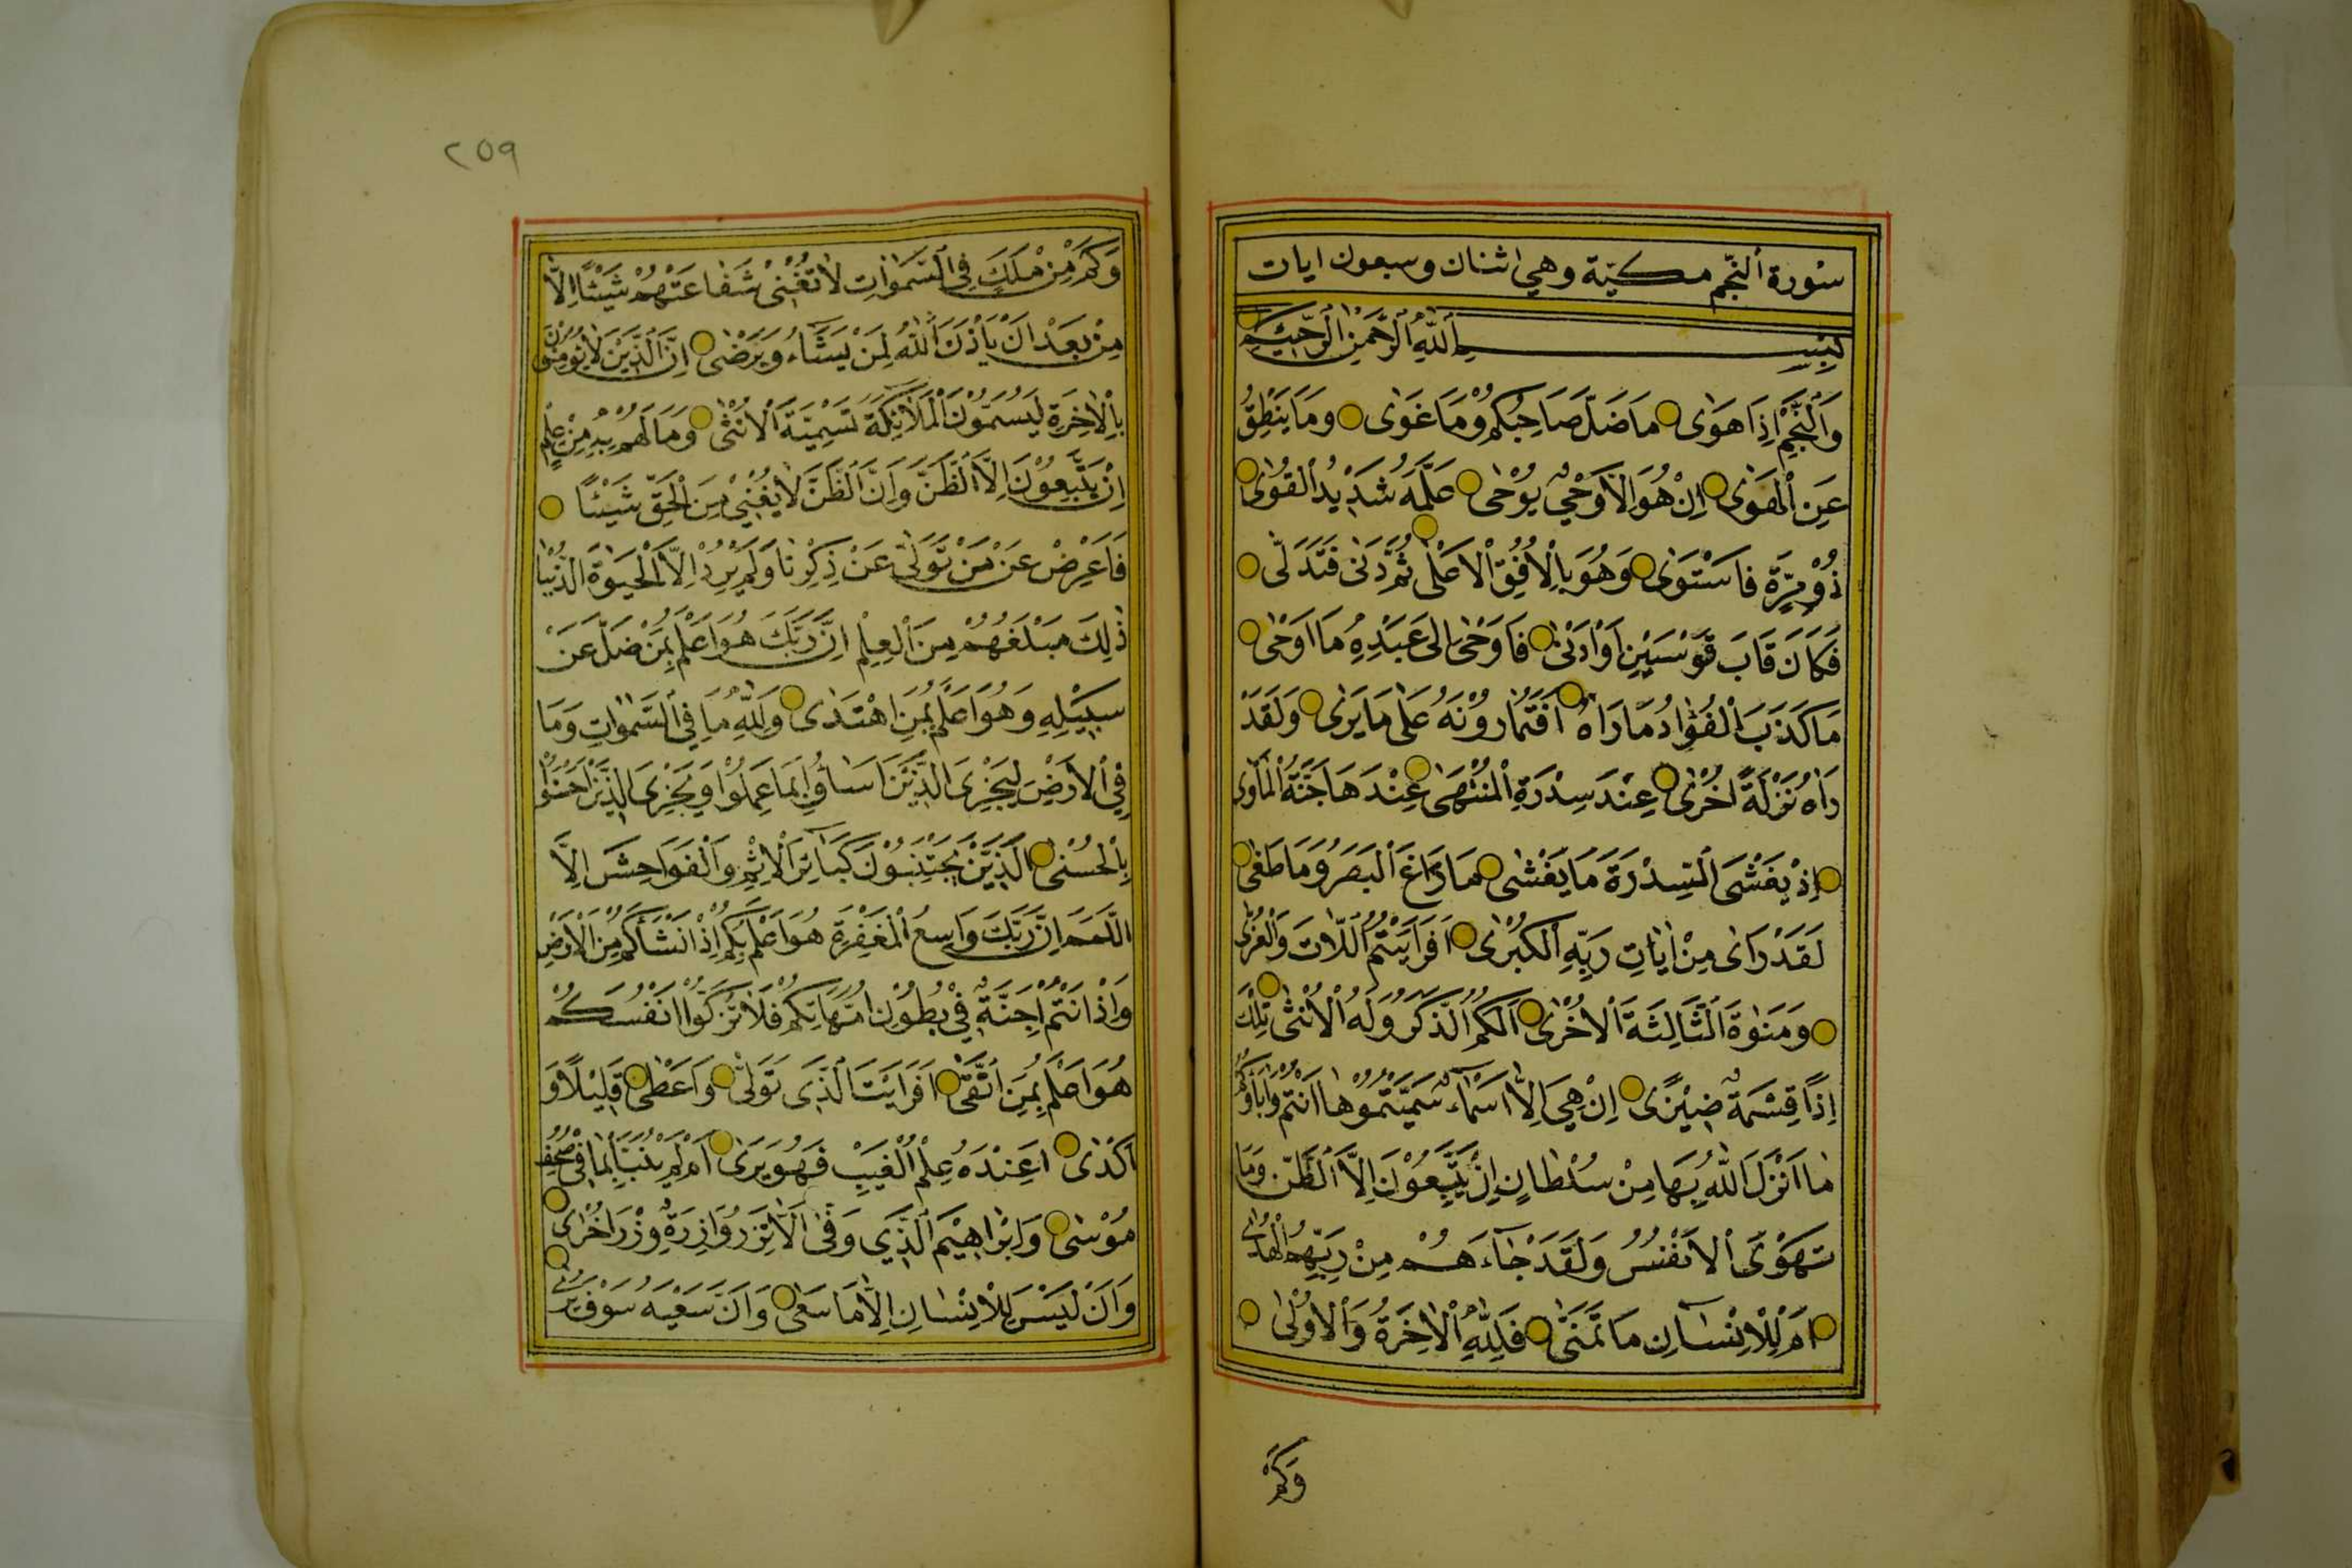 سُورة اَلنَّجّم مكيّة وهي اثنان وسبعون ايات
بِسْمِ اَللهِ اَلرَّحْمٰنِ اَلرَّحِيمِ
وَاَلنَّجْمِ اِذَا هَوٰى مَا ضَلَّ صَاحِبُكُمْ وَمَا غَوٰى وَمَا يَنْطِقُ
عَنِ اَلْهَوٰى اِنْ هُوَ اِلَّا وَحْيٌ يُوْحٰى عَلَّمَهُ شَدِيْدُ اَلْقُوٰى
ذُوْ مِرَّةٍ فَاسْتَوٰى وَهُوَ بِالْاُفُقِ اَلْاَعْلٰى ثُمَّ دَنٰى فَتَدَلّٰى
فَكَانَ قَابَ قَوْسَيْنِ اَوْ اَدْنٰى فَاَوْحٰى اِلٰى عَبْدِهِ مَا اَوْحٰى
مَا كَذَبَ اَلْفُؤٰادُ مَا رَاٰهُ اَفَتُمٰارُوْنَهُ عَلٰى مَا يَرٰى وَلَقَدْ
رَاٰهُ نَزْلَةً اُخْرٰى عِنْدَ سِدْرَةِ اَلْمُنْتَهٰى عِنْدَهَا جَنَّةُ اَلْمَاْوٰى
اِذْ يَغْشَى اَلسِّدْرَةَ مَا يَغْشٰى مَا زَاغَ اَلْبَصَرُ وَمَا طَغٰى
لَقَدْ رَاٰى مِنْ اٰيٰاتِ رَبِّهِ اَلْكُبْرٰى اَفَرَاَيْتُمُ اَللَّاتَ وَاَلْعُزّٰى
وَمَنٰوةَ اَلثَّالِثَةَ اَلْاُخْرٰى اَلَكُمُ اَلذَّكَرُ وَلَهُ اَلْاُنْثٰى تِلْكَ
اِذًا قِسْمَةٌ ضِيْزٰى اِنْ هِيَ اِلَّا اَسْمَاءٌ سَمَّيْتُمُوْهٰا اَنْتُمْ وَاٰبَاؤُكُمْ
مٰا اَنْزَلَ اَللهُ بِهَا مِنْ سُلْطٰانٍ اِنْ يَتَّبِعُوْنَ اِلَّا اَلظَّنَّ وَمَا
تَهْوَى اَلْاَنْفُسُ وَلَقَدْ جٰاءَهُمْ مِنْ رَبِّهِمُ اَلْهُدٰى
اَمْ لِلْاِنْسٰانِ مَا تَمَنّٰى فَلِلّٰهِ اَلْاٰخِرَةُ وَاَلْاُوْلٰى
وَكَمْ
٢٥٩
وَكَمْ مِنْ مَلَكٍ فِي اَلسَّمٰوٰاتِ لَا تُغْنِيْ شَفٰاعَتُهُمْ شَيْئًا اِلَّا
مِنْ بَعْدِ اَنْ يَاْذَنَ اَللهُ لِمَنْ يَشَاءُ وَيَرْضٰى اِنَّ اَلَّذِيْنَ لَا يُؤْمِنُوْنَ
بِالْاٰخِرَةِ لَيُسَمُّوْنَ اَلْمَلٰائِكَةَ تَسْمِيَةَ اَلْاُنْثٰى وَمَا لَهُمْ بِهِ مِنْ عِلْمٍ
اِنْ يَتَّبِعُوْنَ اِلَّا اَلظَّنَّ وَاِنَّ اَلظَّنَّ لَا يُغْنِيْ مِنَ اَلْحَقِّ شَيْئًا
فَاَعْرِضْ عَنْ مَنْ تَوَلّٰى عَنْ ذِكْرِنٰا وَلَمْ يُرِدْ اِلَّا اَلْحَيٰوةَ الدُّنْيٰا
ذٰلِكَ مَبْلَغُهُمْ مِنَ اَلْعِلْمِ اِنَّ رَبَّكَ هُوَ اَعْلَمُ بِمَنْ ضَلَّ عَنْ
سَبِيْلِهِ وَهُوَ اَعْلَمُ بِمَنِ اهْتَدٰى وَلِلّٰهِ مَا فِي اَلسَّمٰوٰاتِ وَمَا
فِي اَلْاَرْضِ لِيَجْزِيَ الَّذِيْنَ اَسٰاؤُا بِمَا عَمِلُوْا وَيَجْزِيَ الَّذِيْنَ اَحْسَنُوْا
بِالْحُسْنٰى اَلَّذِيْنَ يَجْتَنِبُوْنَ كَبَائِرَ اَلْاِثْمِ وَاَلْفَوَاحِشَ اِلَّا
اللَّمَمَ اِنَّ رَبَّكَ وَاسِعُ اَلْمَغْفِرَةِ هُوَ اَعْلَمُ بِكُمْ اِذْ اَنْشَاَكُمْ مِنَ الْاَرْضِ
وَاِذْ اَنْتُمْ اَجِنَّةٌ فِيْ بُطُوْنِ اُمَّهَاتِكُمْ فَلَا تُزَكُّوْا اَنْفُسَكُمْ
هُوَ اَعْلَمُ بِمَنِ اتَّقٰى اَفَرَاَيْتَ اَلَّذِيْ تَوَلّٰى وَاَعْطٰى قَلِيْلًا وَ
اَكْدٰى اَعِنْدَهُ عِلْمُ اَلْغَيْبِ فَهُوَ يَرٰى اَمْ لَمْ يُنَبَّاْ بِمٰا فِيْ صُحُفِ
مُوْسٰى وَاِبْرٰاهِيْمَ اَلَّذِيْ وَفّٰى اَلَّا تَزِرُ وَازِرَةٌ وِزْرَ اُخْرٰى
وَاَنْ لَيْسَ لِلْاِنْسٰانِ اِلَّا مَا سَعٰى وَاَنَّ سَعْيَهُ سَوْفَ يُرٰى